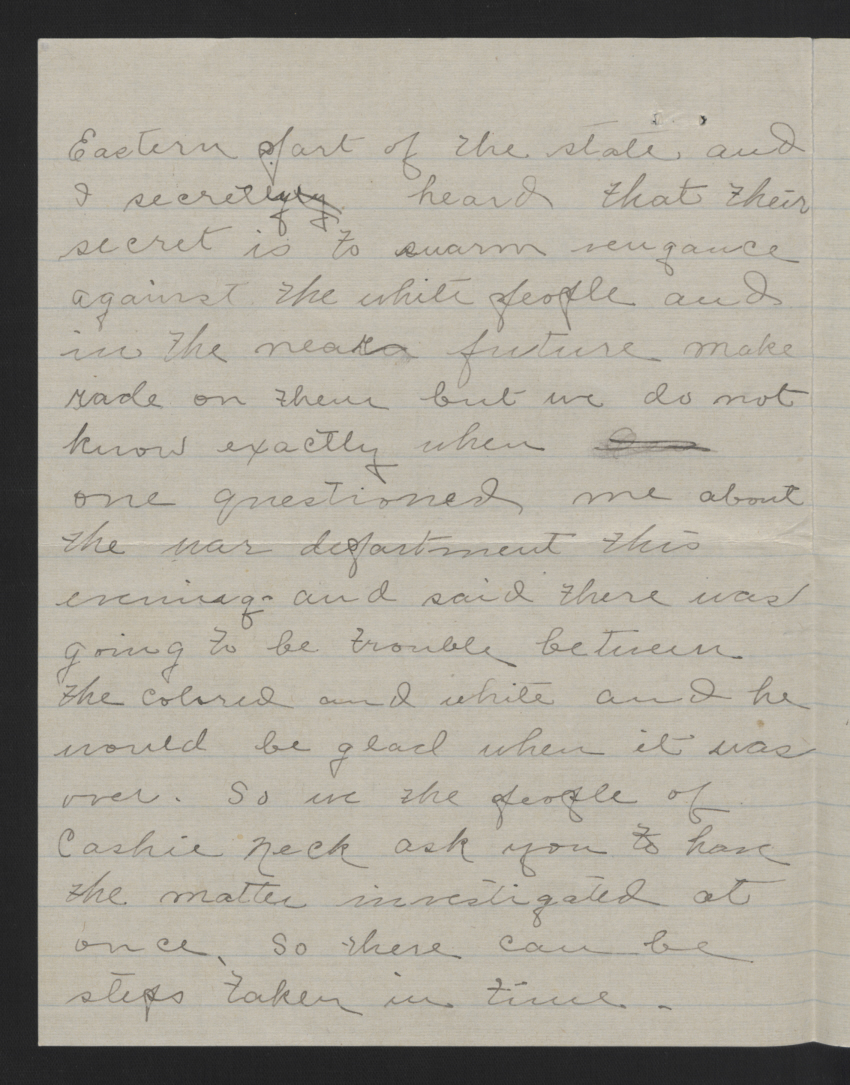 Eastern part of the state, and
I secretly heard that their
secret is to swarm vengance
against the white people and
in the near future make
rade on them but we do not
know exactly when
one questioned me about
the war department this
evening- and said there was
going to be trouble between
the colored and white and he
would be glad when it was
over. So we the people of
Cashie neck ask you to have
the matter investigated at
once. So there can be
steps taken in time.-